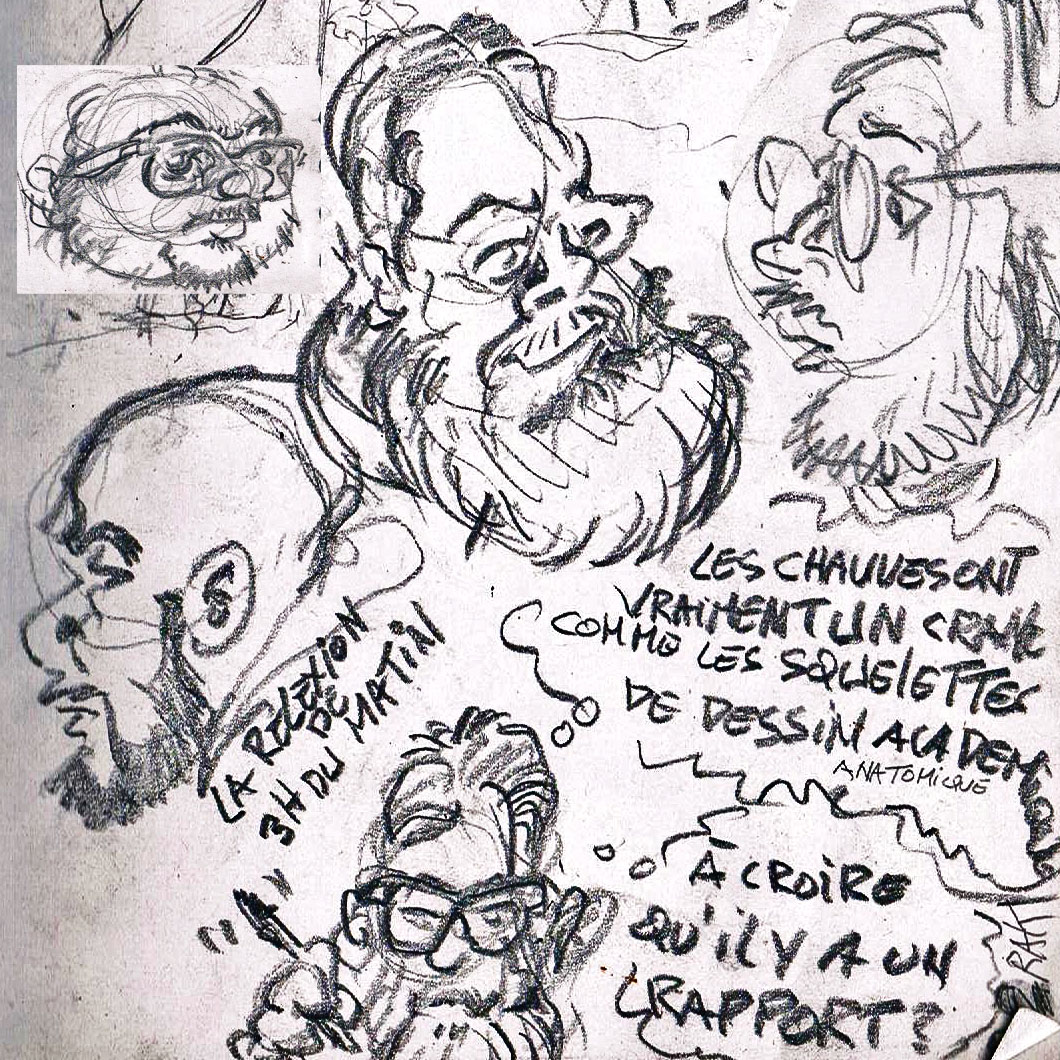 LES CHAUVES ONT
VRAIMENT UN CRANE
COMME LES SQUELETTES
DE DESSIN ACADEM
ANATOMIQUE
LA REFLEXION
DE
3H DU MATIN
À CROIRE
QU'IL Y A UN
RAPPORT?